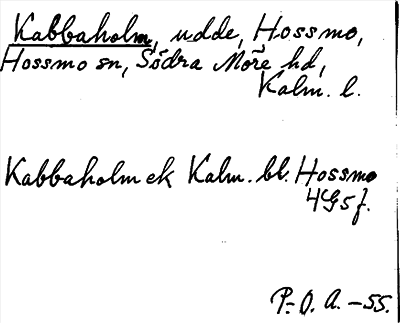 Kabbaholm, udde, Hossmo,
Hossmo sn, Södra Möre hd,
Kalm. l.
Kabbaholm ek Kalm. bl. Hossmo
4G5f.
P.-O. A. -55.